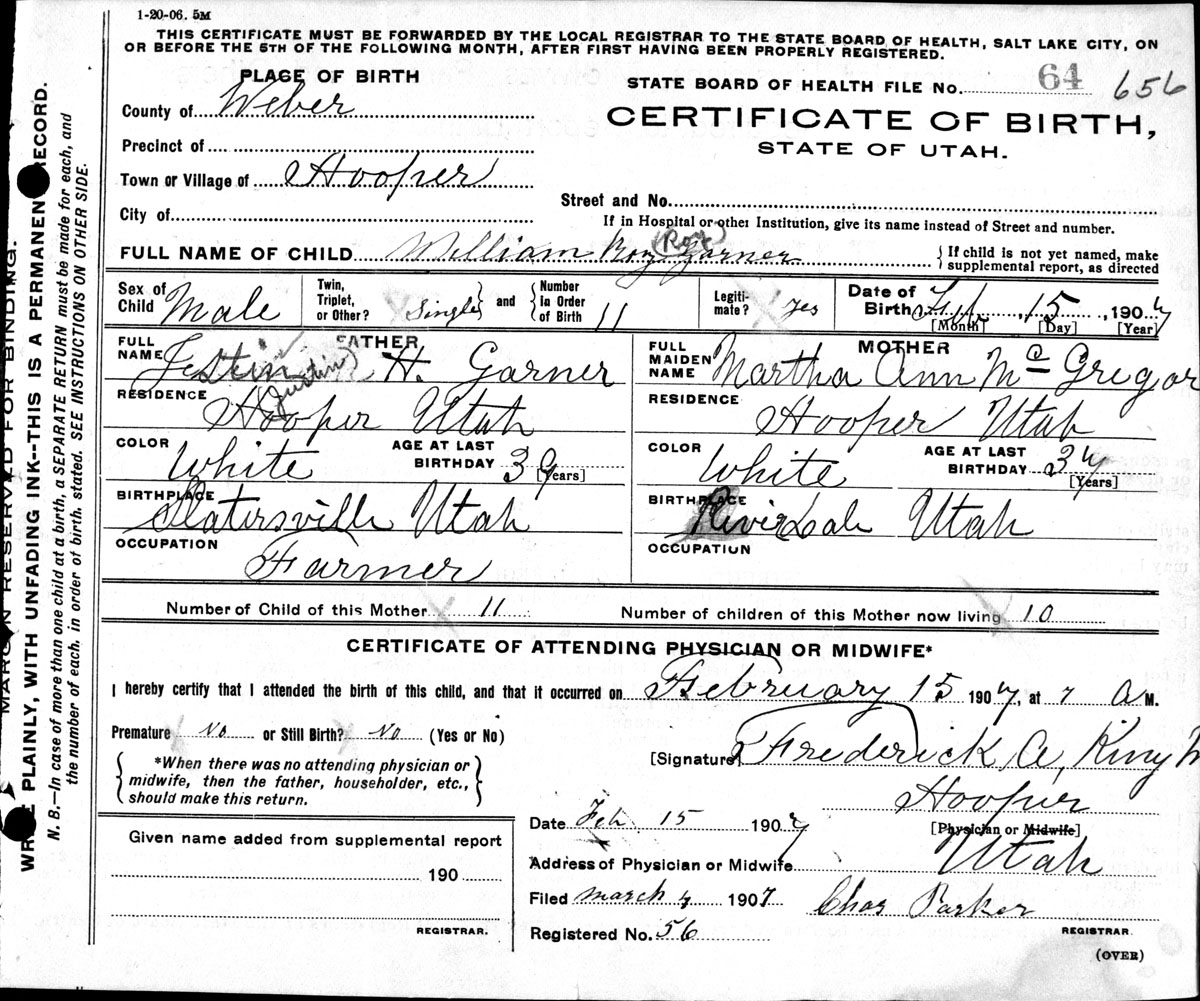 1-20-06. 5M
THIS CERTIFICATE MUST BE FORWARDED BY THE LOCAL REGISTRAR TO THE STATE BOARD OF HEALTH, SALT LAKE CITY, ON
OR BEFORE THE 5TH OF THE FOLLOWING MONTH, AFTER FIRST HAVING BEEN PROPERLY REGISTERED.
PLACE OF BIRTH
County of Weber
Precinct of
Town or Village of Hooper
City of
STATE BOARD OF HEALTH FILE No. 64 656
CERTIFICATE OF BIRTH,
STATE OF UTAH.
Street and No.
If in Hospital or other Institution, give its name instead of Street and number.
FULL NAME OF CHILD William Roy (Roy) Garner
{ If child is not yet named, make
supplemental report, as directed
Sex of Child Male
Twin, Triplet, or Other? Single } and { Number in Order of Birth 11
Legiti-mate? Yes
Date of Birth Feb. 15, 1907
[Month] [Day] [Year]
FATHER
FULL NAME Jestin (Justin) H. Garner
RESIDENCE Hooper Utah
COLOR White AGE AT LAST BIRTHDAY 39 [Years]
BIRTHPLACE Slatersville Utah
OCCUPATION Farmer
MOTHER
FULL MAIDEN NAME Martha Ann McGregor
RESIDENCE Hooper Utah
COLOR White AGE AT LAST BIRTHDAY 37 [Years]
BIRTHPLACE RiverDale Utah
OCCUPATION
Number of Child of this Mother 11 Number of children of this Mother now living 10
CERTIFICATE OF ATTENDING PHYSICIAN OR MIDWIFE*
I hereby certify that I attended the birth of this child, and that it occurred on February 15 1907, at 7 A M.
Premature No or Still Birth? No (Yes or No)
{ *When there was no attending physician or
midwife, then the father, householder, etc.,
should make this return. }
[Signature] Frederick A, King M
Hooper
[Physician or Midwife]
Date Feb 15 1907
Address of Physician or Midwife Utah
Filed March 4 1907 Chas Parker
Registered No. 56 REGISTRAR.
(OVER)
Given name added from supplemental report
190
REGISTRAR.
MARGIN RESERVED FOR BINDING.
WRITE PLAINLY, WITH UNFADING INK--THIS IS A PERMANENT RECORD.
N. B.—In case of more than one child at a birth, a SEPARATE RETURN must be made for each, and
the number of each, in order of birth, stated. SEE INSTRUCTIONS ON OTHER SIDE.